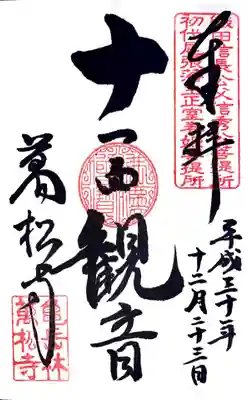 織田信長公父信秀公菩提所
初代尾張藩主正室春姫菩提所
奉拝
平成三十年
十二月二十三日
十一面観音
萬松寺
亀岳林
萬松寺